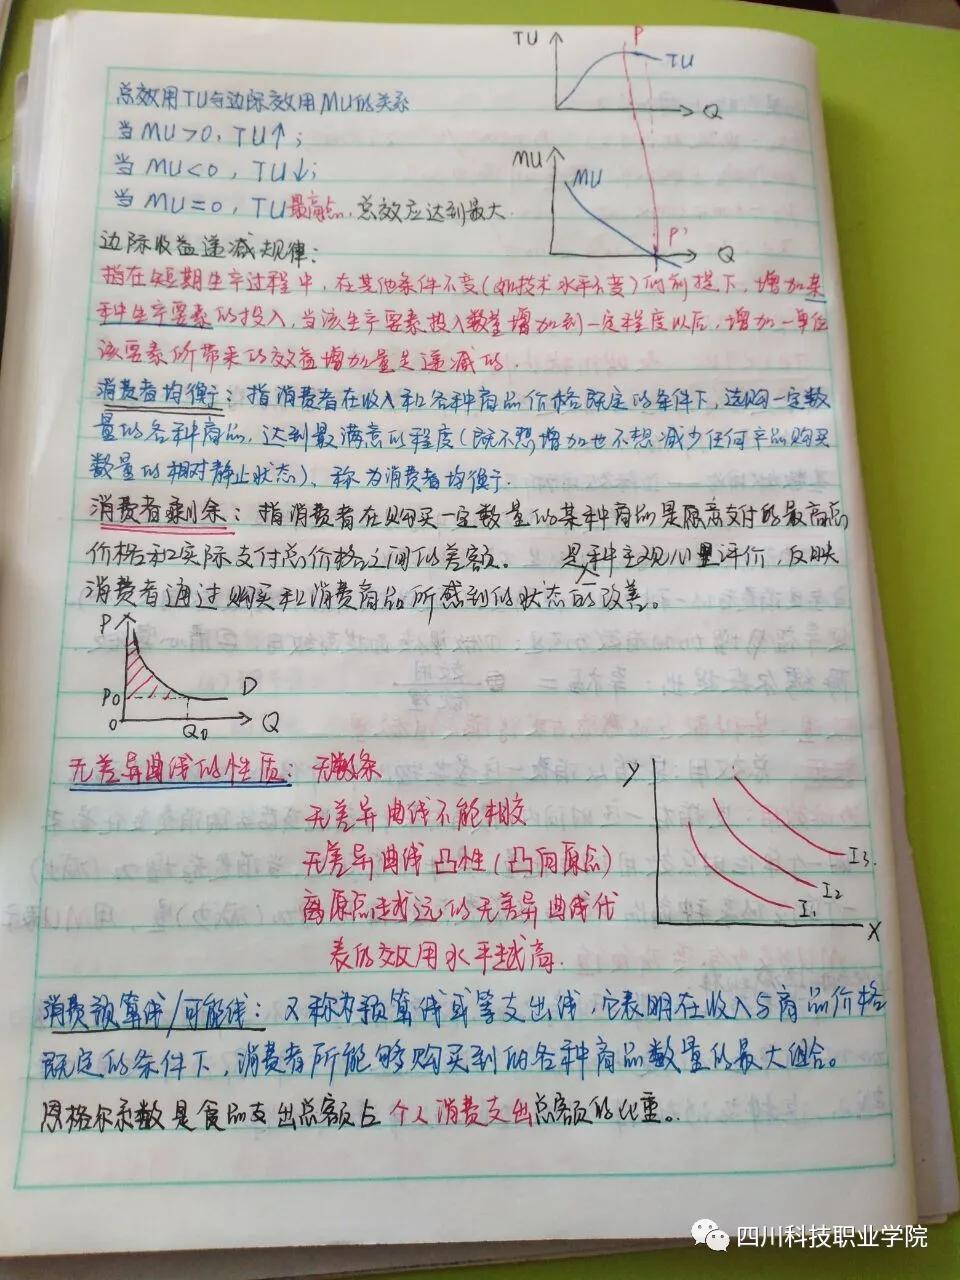 TU
P
TU
Q
总效用TU与边际效用MU的关系
当MU>0,TU↑;
当MU<0,TU↓;
当MU=0,TU最高点,总效应达到最大.
MU
MU
P'
Q
边际收益递减规律:
指在短期生产过程中,在其他条件不变(如技术水平不变)的前提下,增加某
种生产要素的投入,当该生产要素投入数量增加到一定程度以后,增加一单位
该要素所带来的效益增加量是递减的.
消费者均衡:指消费者在收入和各种商品价格既定的条件下,选购一定数
量的各种商品,达到最满意的程度(既不想增加也不想减少任何产品购买
数量的相对静止状态),称为消费者均衡.
消费者剩余:指消费者在购买一定数量的某种商品是愿意支付的最高总
价格和实际支付总价格之间的差额。 是一种主观心里评价,反映
消费者通过购买和消费商品所感到的状态的改善。
P
D
P0
0
Q0
Q
无差异曲线的性质:无数条
无差异曲线不能相交
无差异曲线凸性(凸向原点)
离原点越远的无差异曲线代
表的效用水平越高.
Y
I3.
I2
I1
X
消费预算线/可能线:又称为预算线或等支出线,它表明在收入与商品价格
既定的条件下,消费者所能够购买到的各种商品数量的最大组合。
恩格尔系数是食品支出总额占个人消费支出总额的比重。
四川科技职业学院